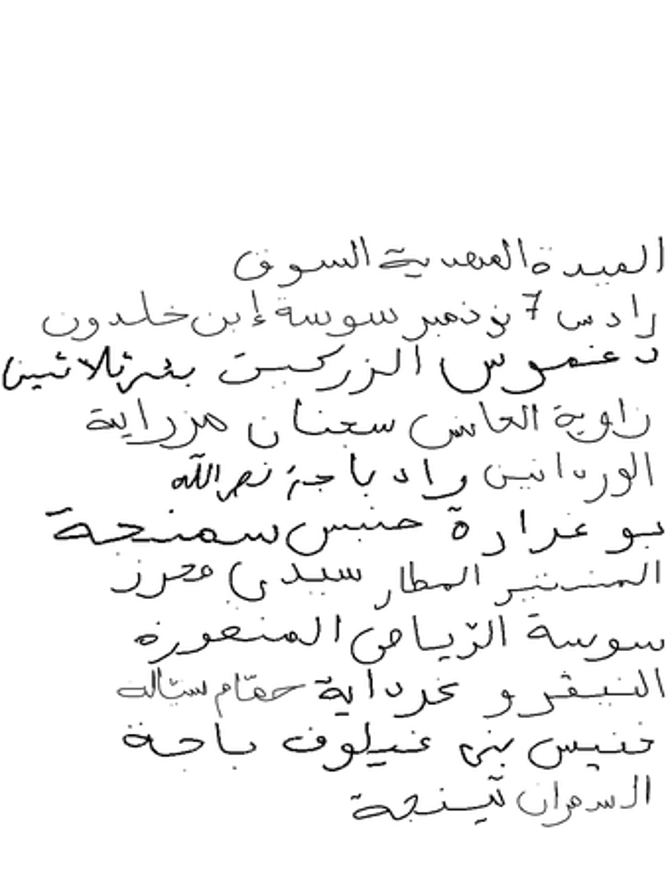 العبدة المهدية السوق
رادس 7 نوفمبر سوسة إبن خلدون
دغموس الزركيت بئر ثلاثين
زاوية العاش سجنان مزراية
الوردانين واد باجة نصر الله
بو عرادة خنيس سمنجة
المنستير المطار سيدي محرز
سوسة الرياض المنصورة
النيفرو غرداية حمّام ستالة
خنيس بني غيلوف باجة
السمران تينجة